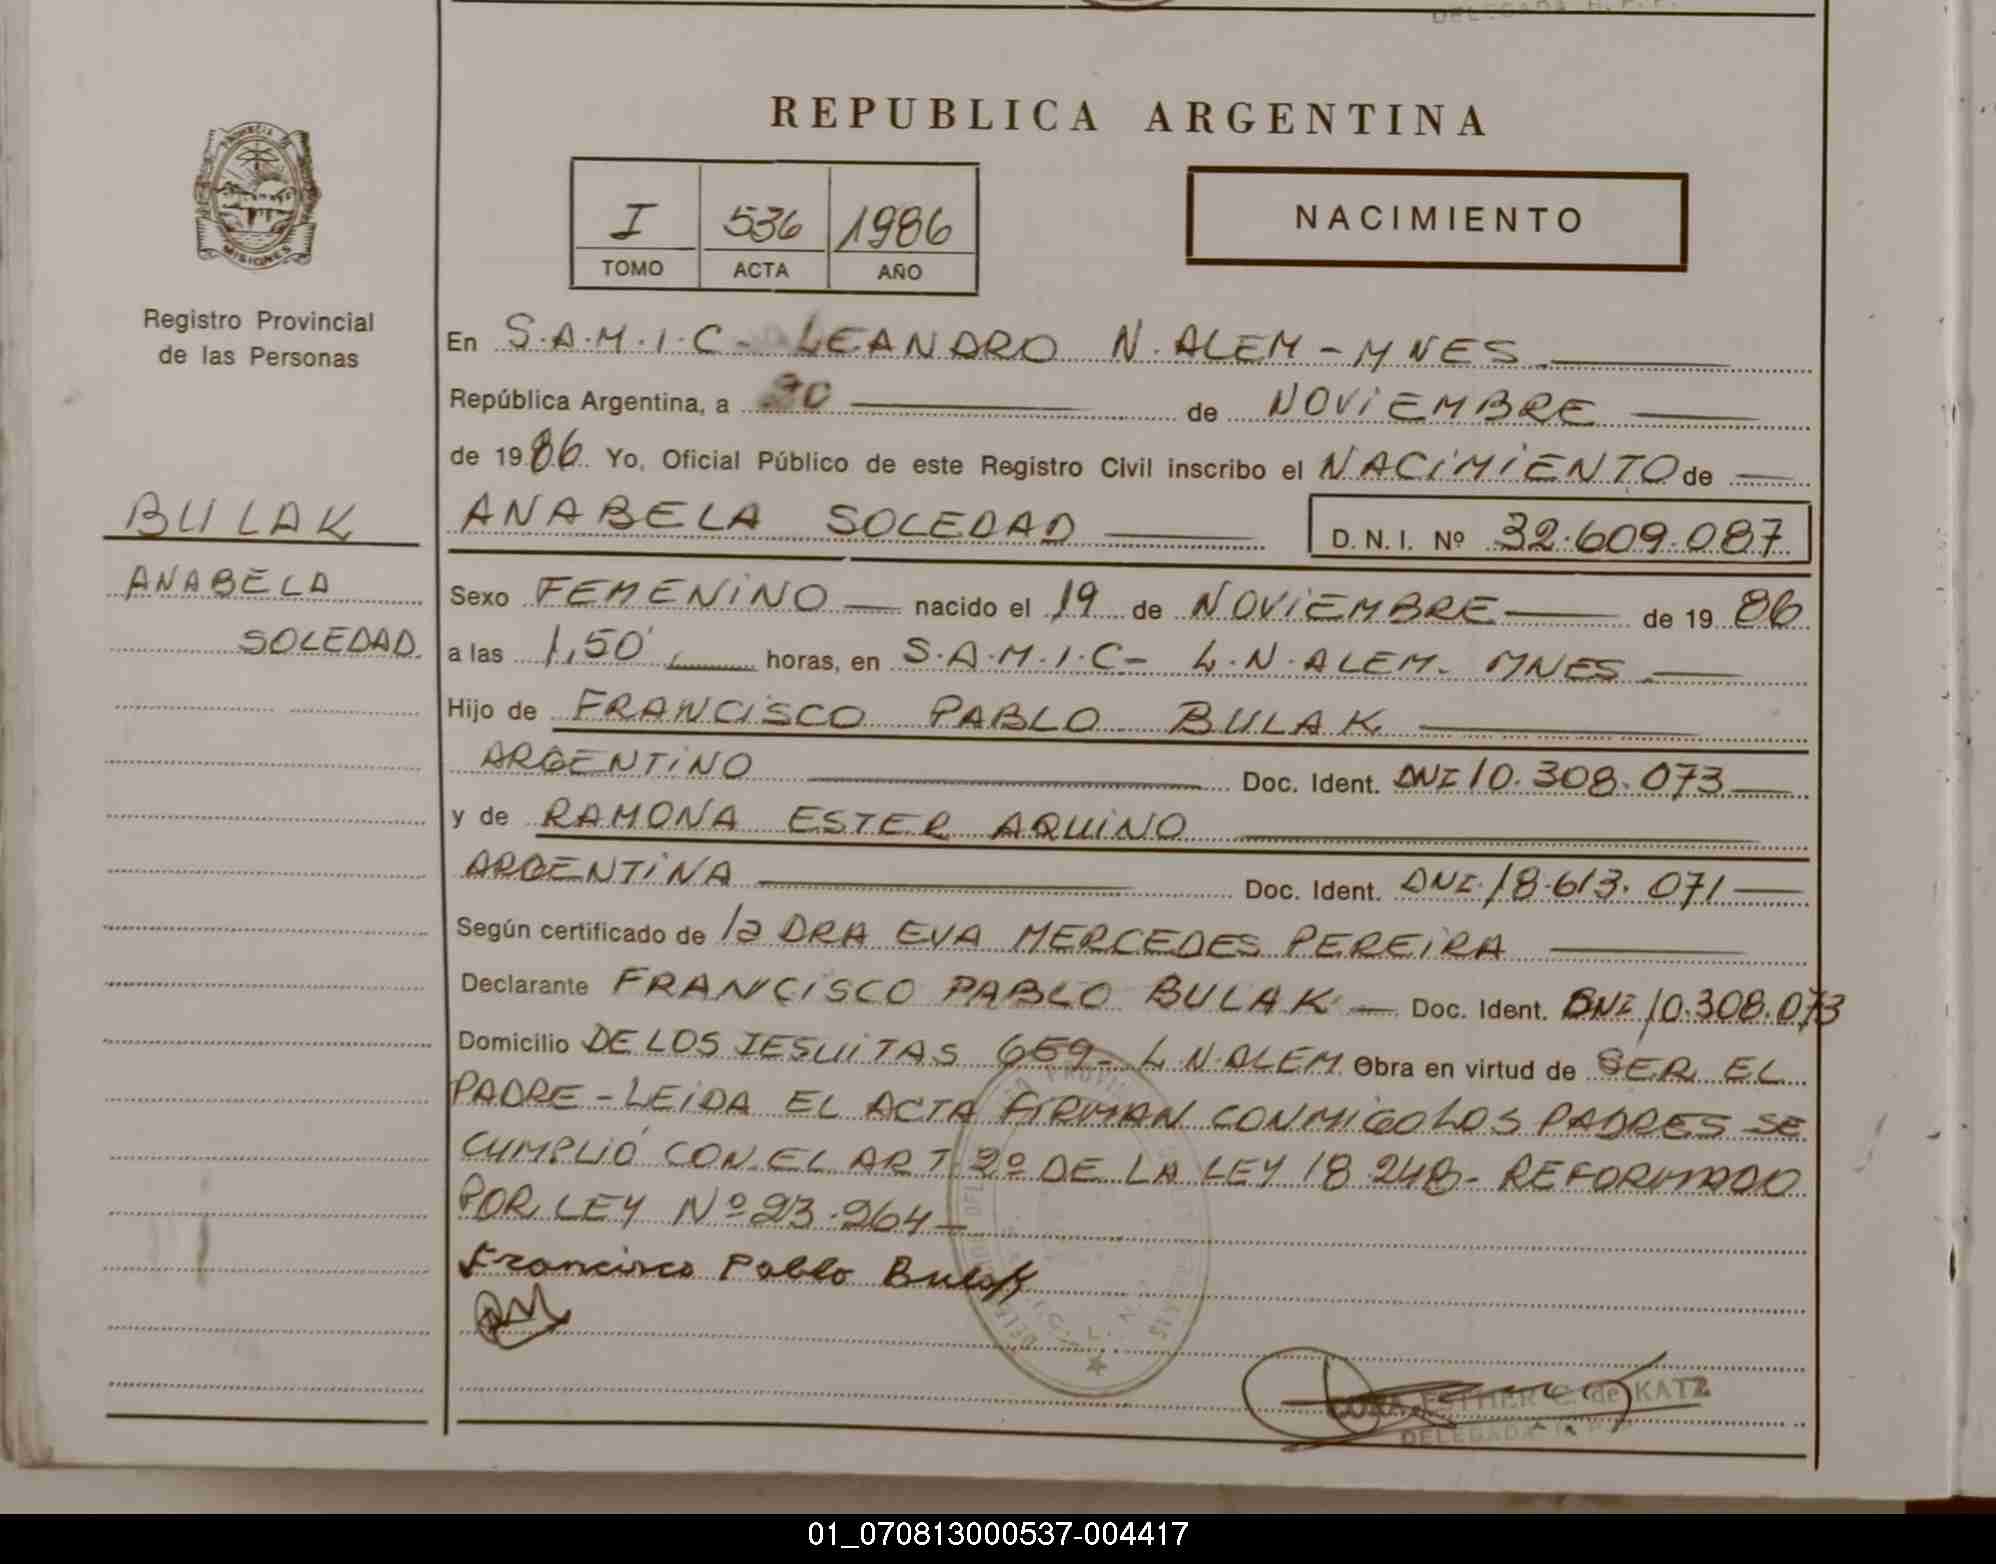 REPUBLICA ARGENTINA
PROVINCIA DE
MISIONES
Registro Provincial
de las Personas
I 536 1986
TOMO ACTA AÑO
NACIMIENTO
En S.A.M.I.C- LEANDRO N. ALEM - MNES
República Argentina, a 20 de NOVIEMBRE
de 1986 Yo, Oficial Público de este Registro Civil inscribo el NACIMIENTO de
BULAK
ANABELA SOLEDAD D.N.I. Nº 32.609.087
ANABELA
SOLEDAD
Sexo FEMENINO nacido el 19 de NOVIEMBRE de 1986
a las 1,50' horas, en S.A.M.I.C- L.N.ALEM- MNES
Hijo de FRANCISCO PABLO BULAK
ARGENTINO Doc. Ident. DNI 10.308.073
y de RAMONA ESTER AQUINO
ARGENTINA Doc. Ident. DNI.18.613.071
Según certificado de la DRA EVA MERCEDES PEREIRA
Declarante FRANCISCO PABLO BULAK Doc. Ident. DNI 10.308.073
Domicilio DE LOS JESUITAS 659- L.N.ALEM Obra en virtud de SER EL
PADRE - LEIDA EL ACTA FIRMAN CONMIGO LOS PADRES SE
CUMPLIÓ CON EL ART. 2º DE LA LEY 18.248- REFORMADO
POR LEY Nº 23.264-
Francisco Pablo Bulak
ESTHER C. de KATZ
DELEGADA
01_070813000537-004417